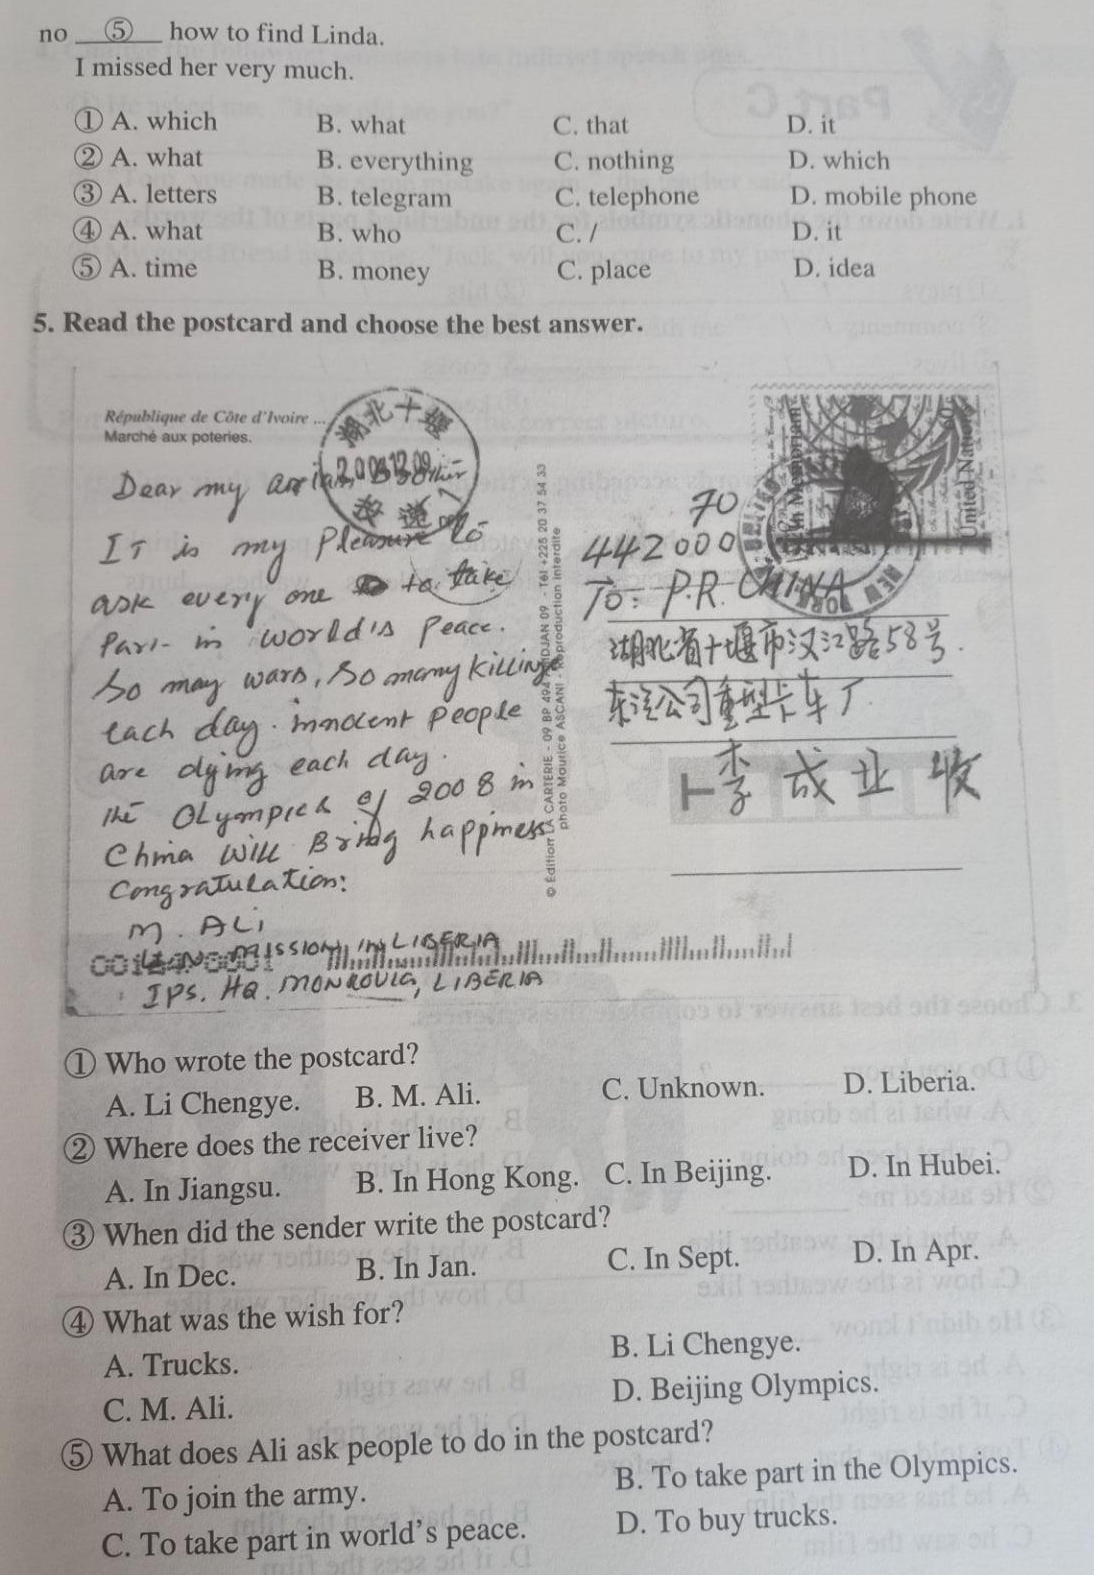 no ⑤ how to find Linda.
I missed her very much.
① A. which B. what C. that D. it
② A. what B. everything C. nothing D. which
③ A. letters B. telegram C. telephone D. mobile phone
④ A. what B. who C. / D. it
⑤ A. time B. money C. place D. idea
5. Read the postcard and choose the best answer.
République de Côte d'Ivoire ...
Marché aux poteries.
湖北十堰
Dear my
IT is my Pleasure to
ask every one to take
Part in world's Peace.
So may wars, So many killings
each day. innocent People
are dying each day.
the OLympics of 2008 in
China will Bring happiness
Congratulation:
M. ALi
MISSION IN LIBERIA
IPS. HQ. MONROVIA, LIBERIA
© Édition LA CARTERIE - 09 BP 494 ABIDJAN 09 - Tél +225 20 37 54 33
photo Maurice ASCANI - Reproduction interdite
In Memoriam
United Nations
NEW YORK
70
442000
To: P.R. CHINA
湖北省十堰市汉江路58号.
东汽公司重型卡车厂
李成业 收
① Who wrote the postcard?
A. Li Chengye. B. M. Ali. C. Unknown. D. Liberia.
② Where does the receiver live?
A. In Jiangsu. B. In Hong Kong. C. In Beijing. D. In Hubei.
③ When did the sender write the postcard?
A. In Dec. B. In Jan. C. In Sept. D. In Apr.
④ What was the wish for?
A. Trucks. B. Li Chengye.
C. M. Ali. D. Beijing Olympics.
⑤ What does Ali ask people to do in the postcard?
A. To join the army. B. To take part in the Olympics.
C. To take part in world's peace. D. To buy trucks.